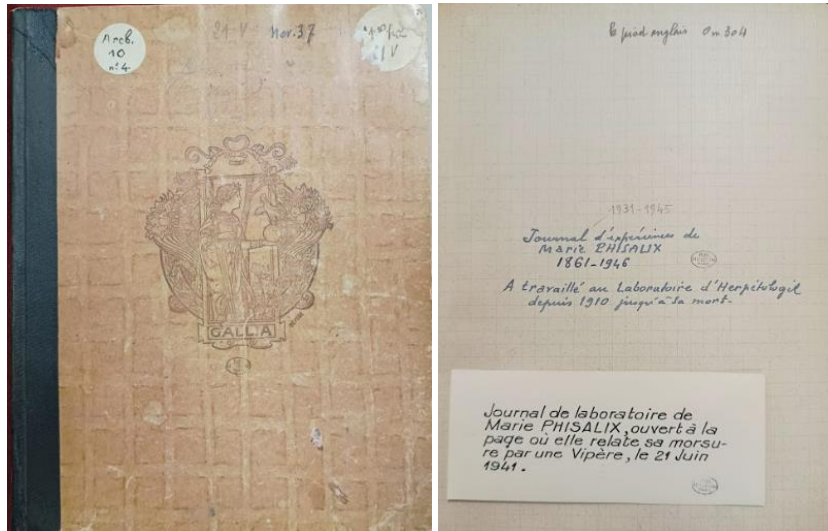 Arch.
10
n° 4
21 V Nov. 37
1 V
GALLIA
pied anglais 0m304
1931-1945
Journal d'expériences de
Marie PHISALIX
1861-1946
A travaillé au Laboratoire d'Herpétologie
depuis 1910 jusqu'à sa mort.
Journal de laboratoire de
Marie PHISALIX, ouvert à la
page où elle relate sa morsu-
re par une Vipère, le 21 Juin
1941.